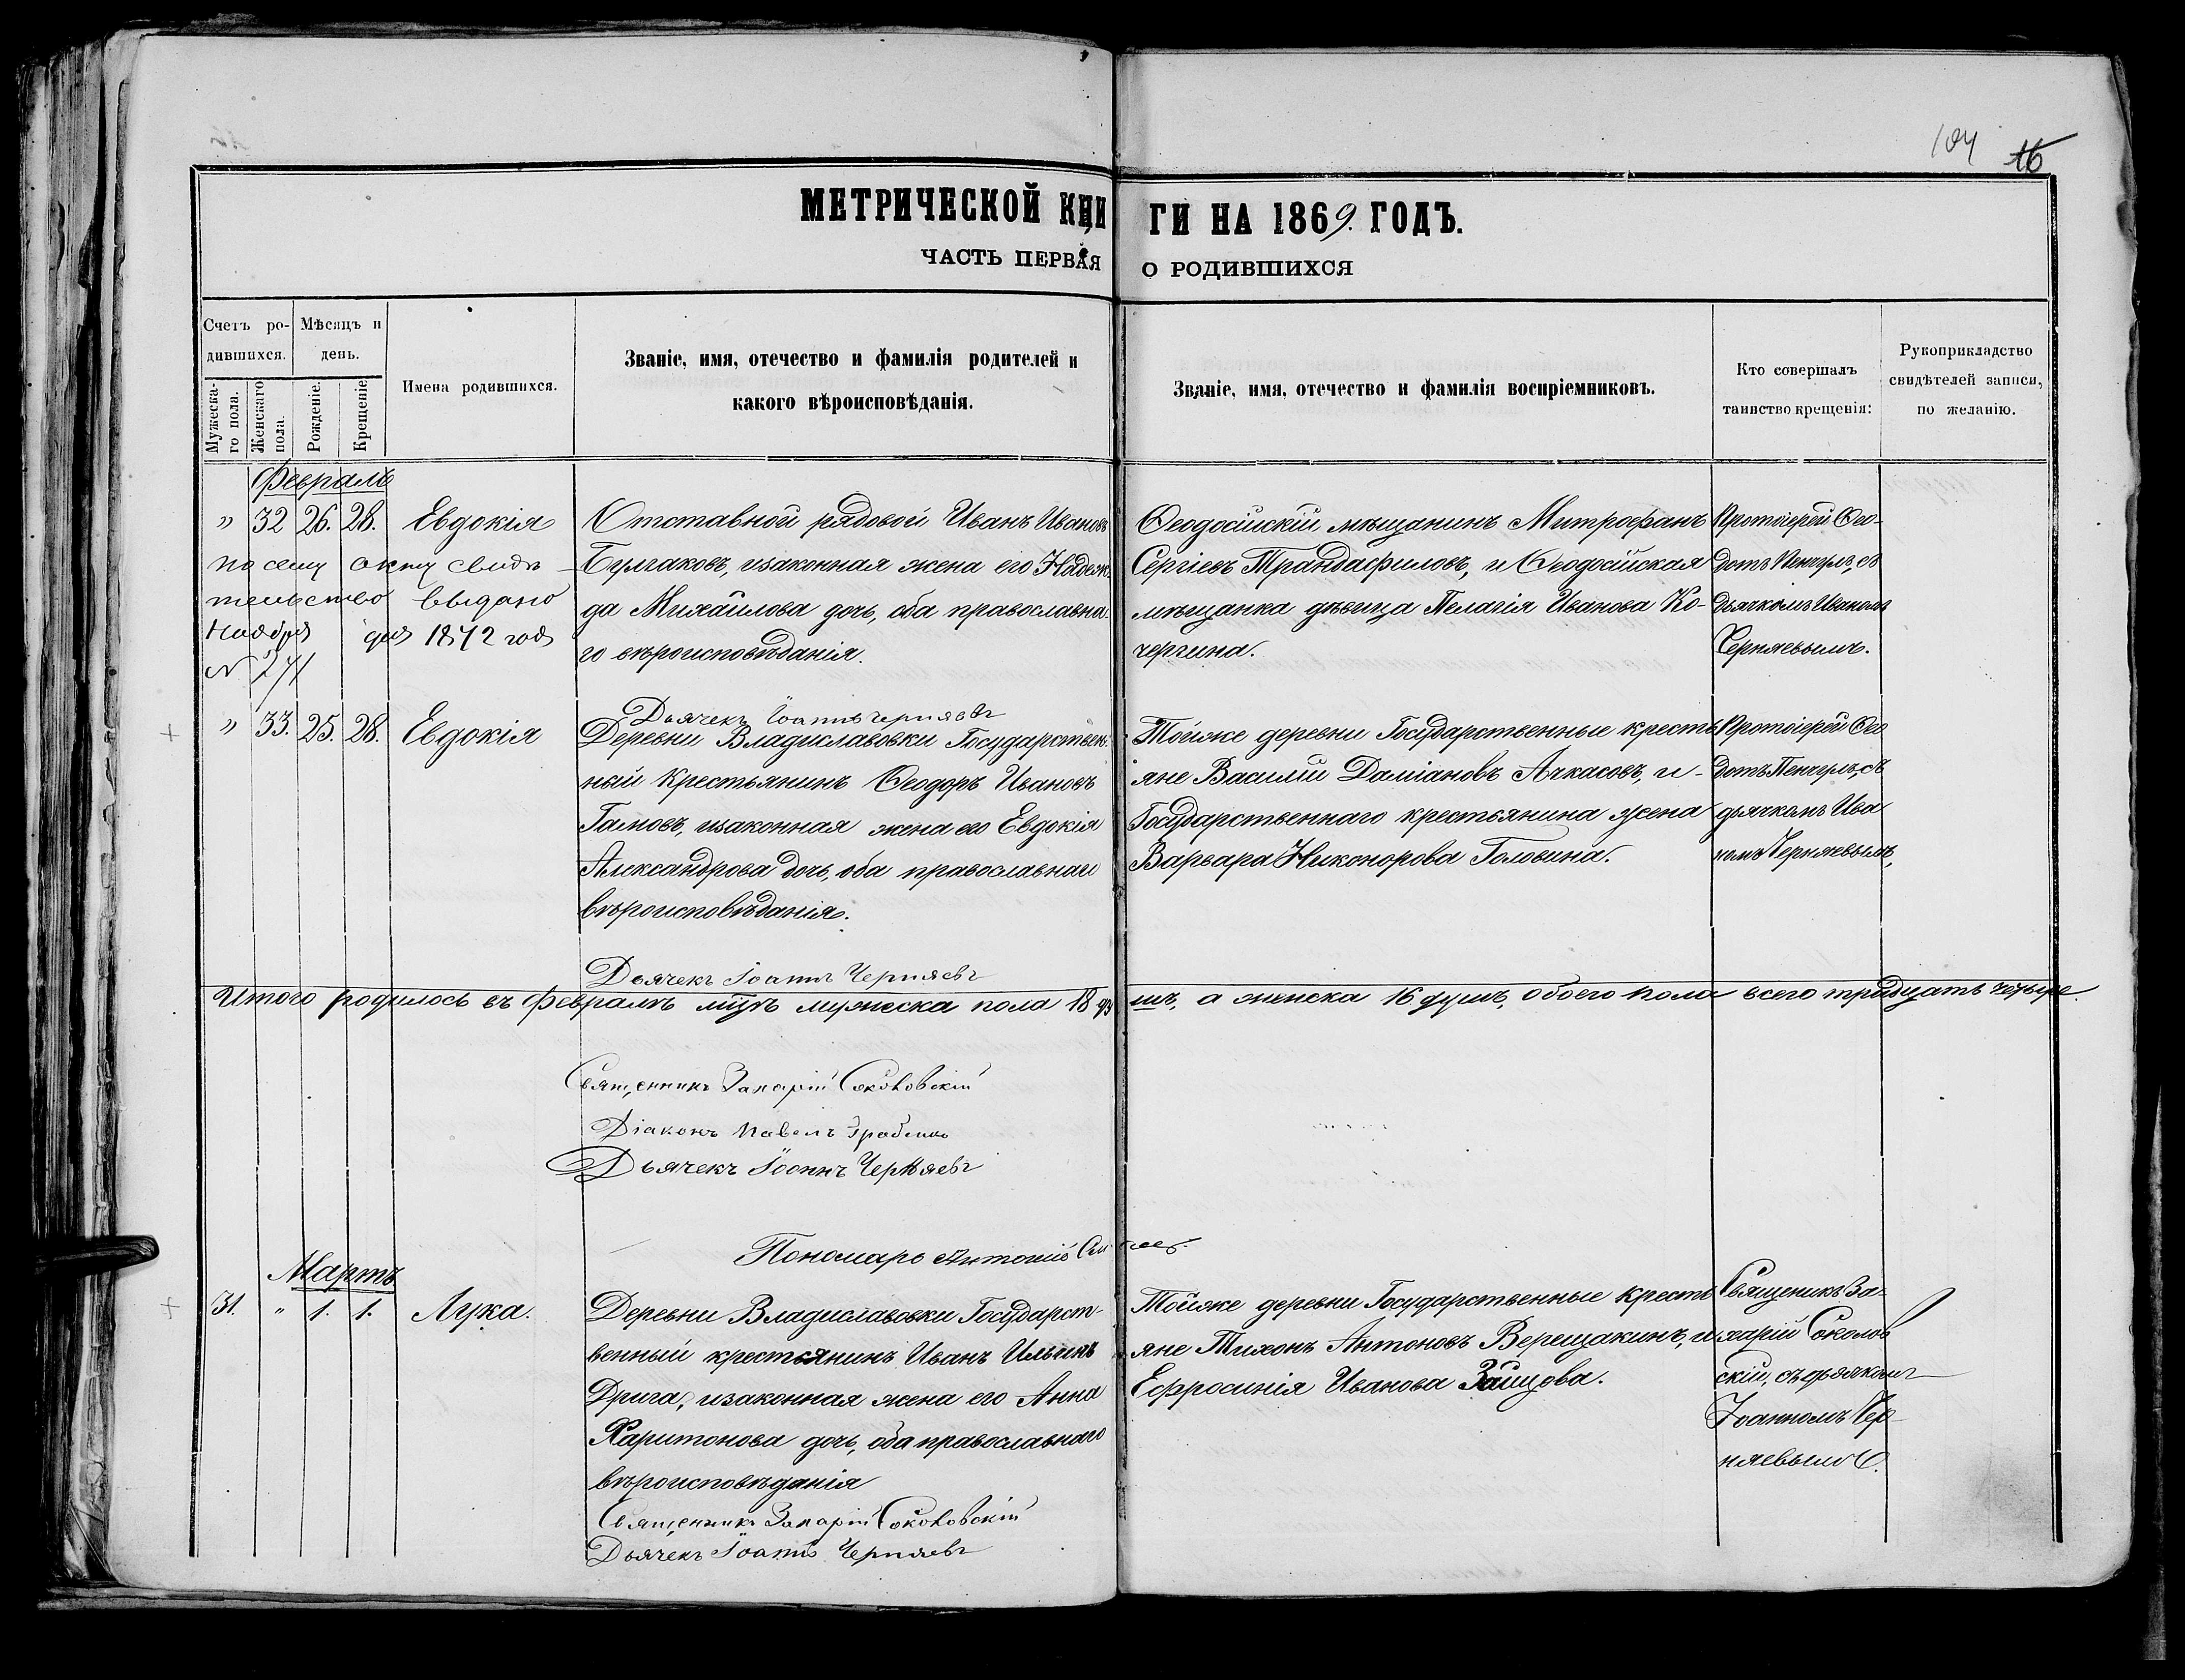 104 16
МЕТРИЧЕСКОЙ КНИГИ НА 1869. ГОДЪ.
ЧАСТЬ ПЕРВАЯ О РОДИВШИХСЯ
Счетъ ро-
дившихся.
Мужеска-
го пола.
Женскаго
пола.
Мѣсяцъ и
день.
Рожденіе.
Крещеніе.
Имена родившихся.
Званіе, имя, отечество и фамилія родителей и
какого вѣроисповѣданія.
Званіе, имя, отечество и фамилія воспріемниковъ.
Кто совершалъ
таинство крещенія:
Рукоприкладство
свидѣтелей записи,
по желанію.
Февраль
" 32 26. 28. Евдокія
По сему акту свидѣ-
тельство выдано
Ноября дня 1872 года
N 271
Отставной рядовой Иванъ Ивановъ
Булгаковъ, изаконная жена его Надеж-
да Михайлова дочь, оба православна-
го вѣроисповѣданія.
Дьячекъ Іоаннъ Черняевъ
Ѳеодосійскій мѣщанинъ Митрофанъ
Сергіевъ Трандафиловъ, и Ѳеодосійская
мѣщанка дѣвица Пелагія Иванова Ко-
чергина.
Протоіерей Ѳео-
дотъ Пенчулъ, съ
дьячкомъ Иваномъ
Черняевымъ.
" 33. 25. 28. Евдокія
Деревни Владиславовки Государствен-
ный Крестьянинъ Ѳеодоръ Ивановъ
Гамовъ, изаконная жена его Евдокія
Александрова дочь, оба православнаго
вѣроисповѣданія.
Дьячекъ Іоаннъ Черняевъ
Тойже деревни Государственные кресть
яне Василій Даміановъ Ачкасовъ, и-
Государственнаго крестьянина жена
Варвара Никонорова Головина.
Протоіерей Ѳео
дотъ Пенчулъ, съ
дьячкомъ Ива
номъ Черняевымъ,
Итого родилось въ Февралѣ мцѣ мужеска пола 18 душъ, а женска 16 душъ, обоего пола всего тридцать четыре.
Священникъ Захарій Соколовскій
Діаконъ Павелъ
Дьячекъ Іоаннъ Черняевъ
Пономарь Антоній
Мартъ
31. " 1. 1. Лука.
Деревни Владиславовки Государст-
венный крестьянинъ Иванъ Ильинъ
Дрига, изаконная жена его Анна
Харитонова дочь, оба православнаго
вѣроисповѣданія
Священникъ Захарій Соколовскій
Дьячекъ Іоаннъ Черняевъ
Тойже деревни Государственные кресть
яне Тихонъ Антоновъ Верещакинъ, и
Ефросинія Иванова Зайцова.
Священикъ За-
харій Соколов
скій, съ дьячкомъ
Іоанномъ Чер-
няевымъ.